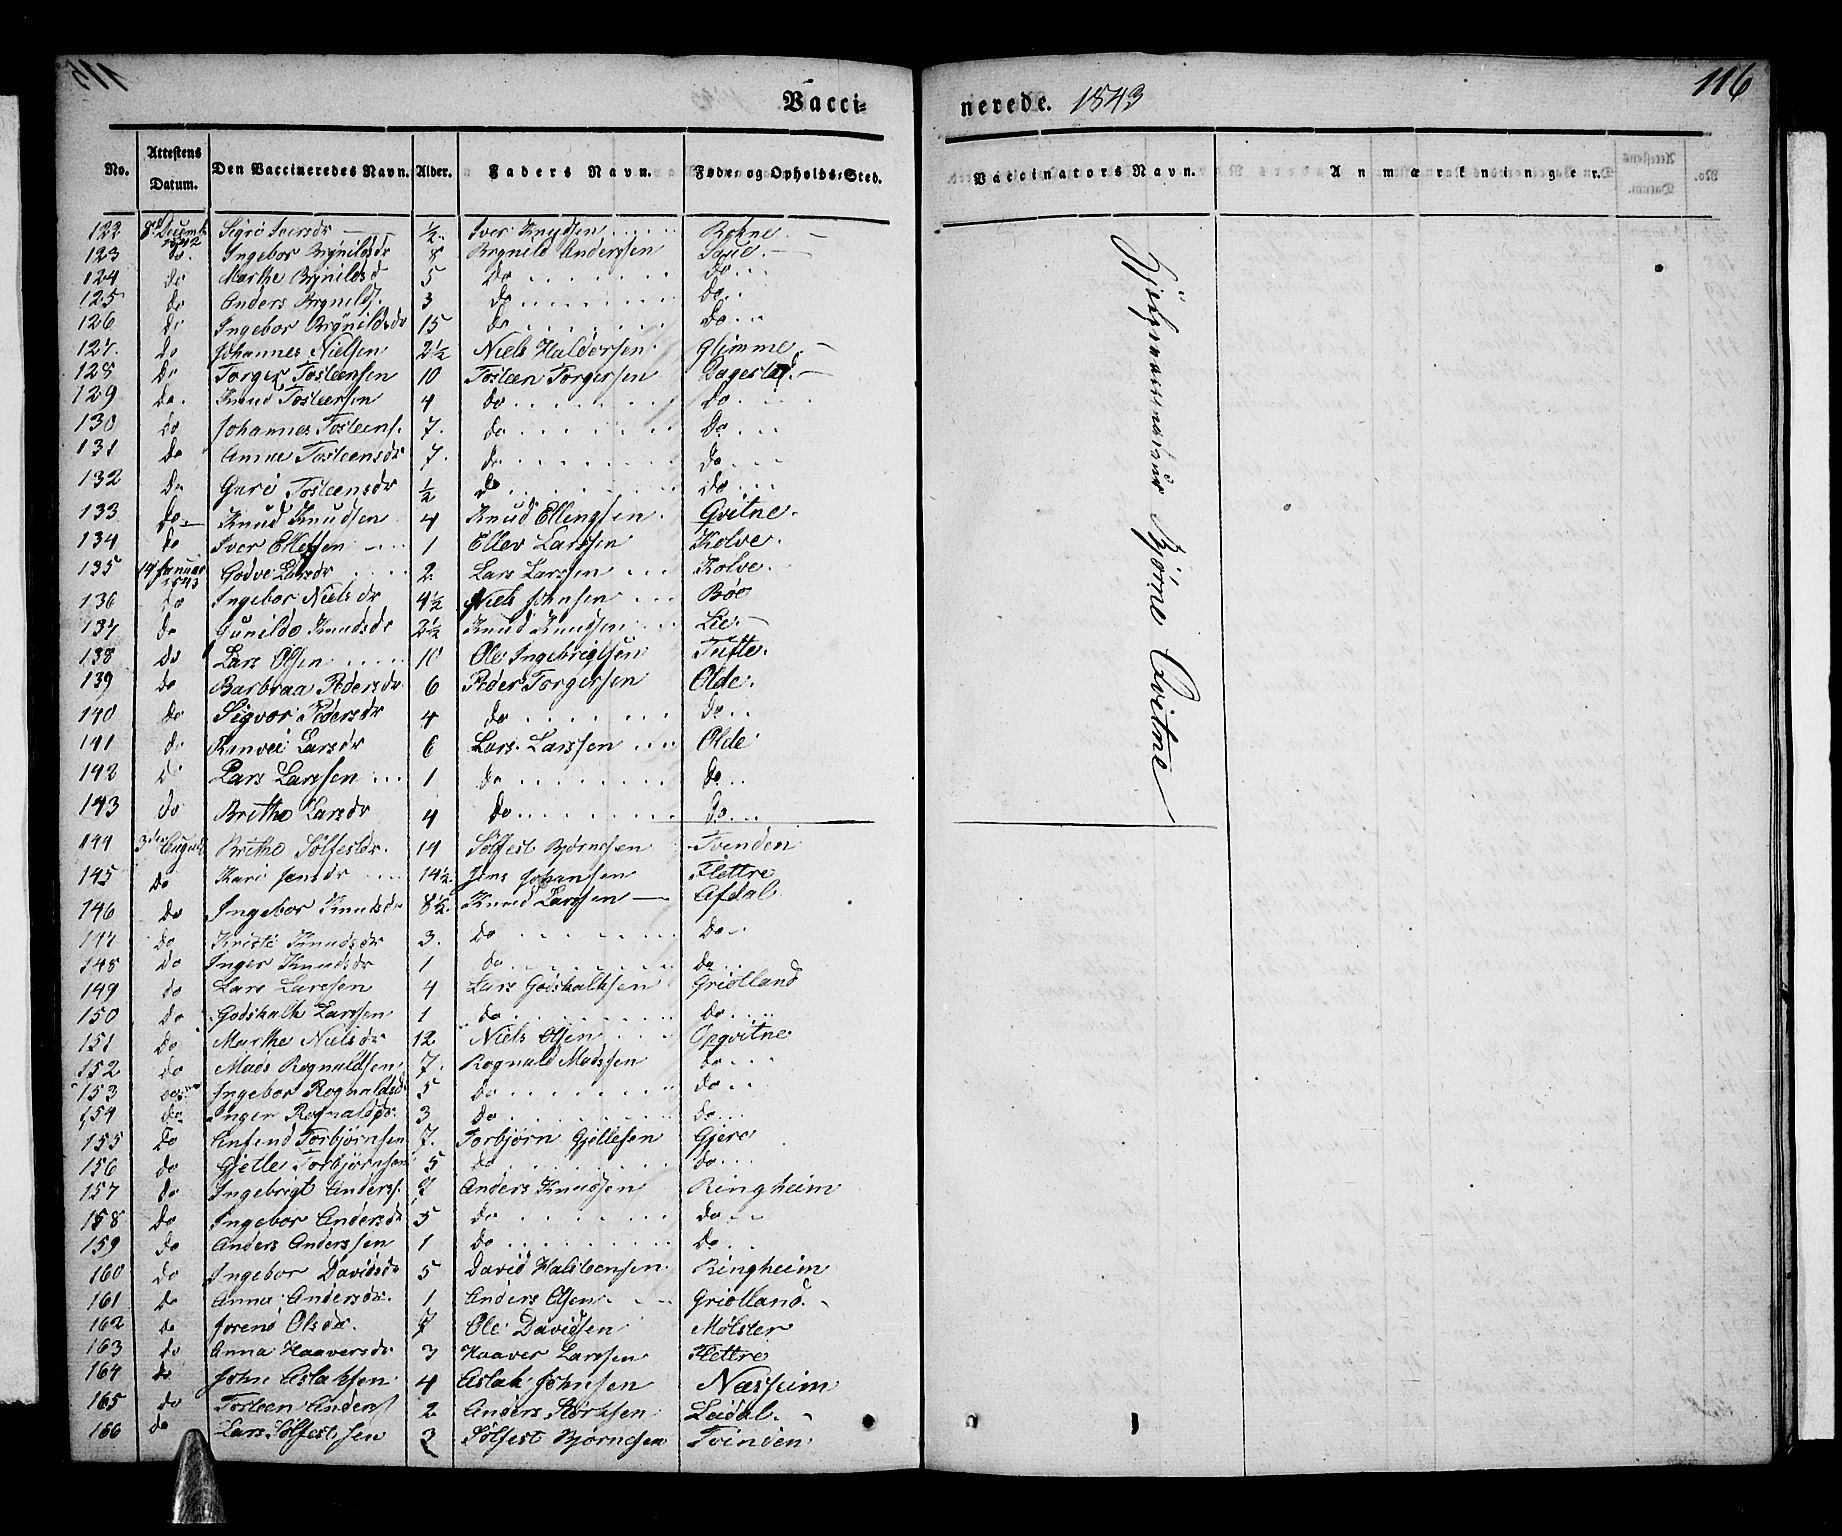 Vacci= nerede. 1843 116
No. Attestens Datum. Den Vaccineredes Navn. Alder. Faders Navn. Føde- og Opholds-Sted. Vaccinators Navn. Anmærkninger.
122 8de Decemb. 1842 Sigri Iversdr ½. Iver Knudsen Rokne.
123 do. Ingebor Brynildsdr 8 Brynild Anderssen Saue.
124 do Marthe Brynildsd 5 do do
125 do Anders Brynilds. 3 do do
126 do Ingebor Brynildsdr 15 do do
127. do Johannes Nielsen 2½ Niels Haldorsen Glimme.
128 do Torger Tosteensen 10 Tosteen Torgersen Dagestad.
129 do. Knud Tosteensen 4 do do
130 do Johannes Tosteens. 7. do do
131 do Anna Tosteensdr 7. do do
132 do Guri Tosteensdr ½ do do
133 do Knud Knudsen 4 Knud Ellingsen Qvitne.
134 do Iver Ellefsen 1 Ellev Larssen Kolve.
135 14 Januar 1843 Godve Larsdr 2. Lars Larssen Kolve.
136 do Ingebor Nielsdr 4½ Niels Johnsen Bøe
137 do Gunilde Knudsdr 2½ Knud Knudsen Lie.
138 do Lars Olsen 10 Ole Ingebrigtsen Tufte.
139 do Barbraa Pedersdr 6 Peder Torgersen Olde.
140 do Sigvor Pedersdr 4 do do
141 do Ranvei Larsdr 6 Lars Larssen Olde
142 d Lars Larssen 1 do do
143 do Britha Larsdr 4 do do
144 3die August Britha Sølfestdr. 14 Sølfest Bjørnesen Tvinden
145 do Kari Jensdr 14½ Jens Johansen Flettre
146 do Ingebor Knudsdr 8½. Knud Larssen Afdal
147 do Kristi Knudsdr 3. do do
148 do Inger Knudsdr 1 do do
149 do Lars Larssen 4 Lars Godskalksen Griolland
150 do Godskalk Larssen 1 do do
151 do Marthe Nielsdr 12 Niels Olsen Opqvitne
152 do Mads Rognaldsen 7. Rognald Madssen do
153 Ingebor Rognaldsd 5 do do
154 do Inger Rognaldsdr. 3 do do
155 do Anfind Torbjørnsen 7. Torbjørn Gjellesen Gjere
156 do Gjelle Torbjørnsen 5 do do
157 do Ingebrigt Anderss. 7 Anders Knudsen Ringheim
158 do Ingebor Andersdr 5 do do
159 do Anders Anderssen 1 do do
160 do Ingebor Davidsdr 5 David Halsteensen Ringheim
161 do Anna Andersdr. 1 Anders Olsen Griolland.
162 do Joren Olsdr. 7 Ole Davidsen Mølster
163 do Anna Haaversdr 3 Haaver Larssen Flettre
164 do John Aslaksen 4 Aslak Johnsen Næsheim
165 do Tosteen Anders 2 Anders Størksen Leidal.
166 do Lars Sølfestsen 3 Sølfest Bjørnesen Tvinden
Bjørne Qvitne